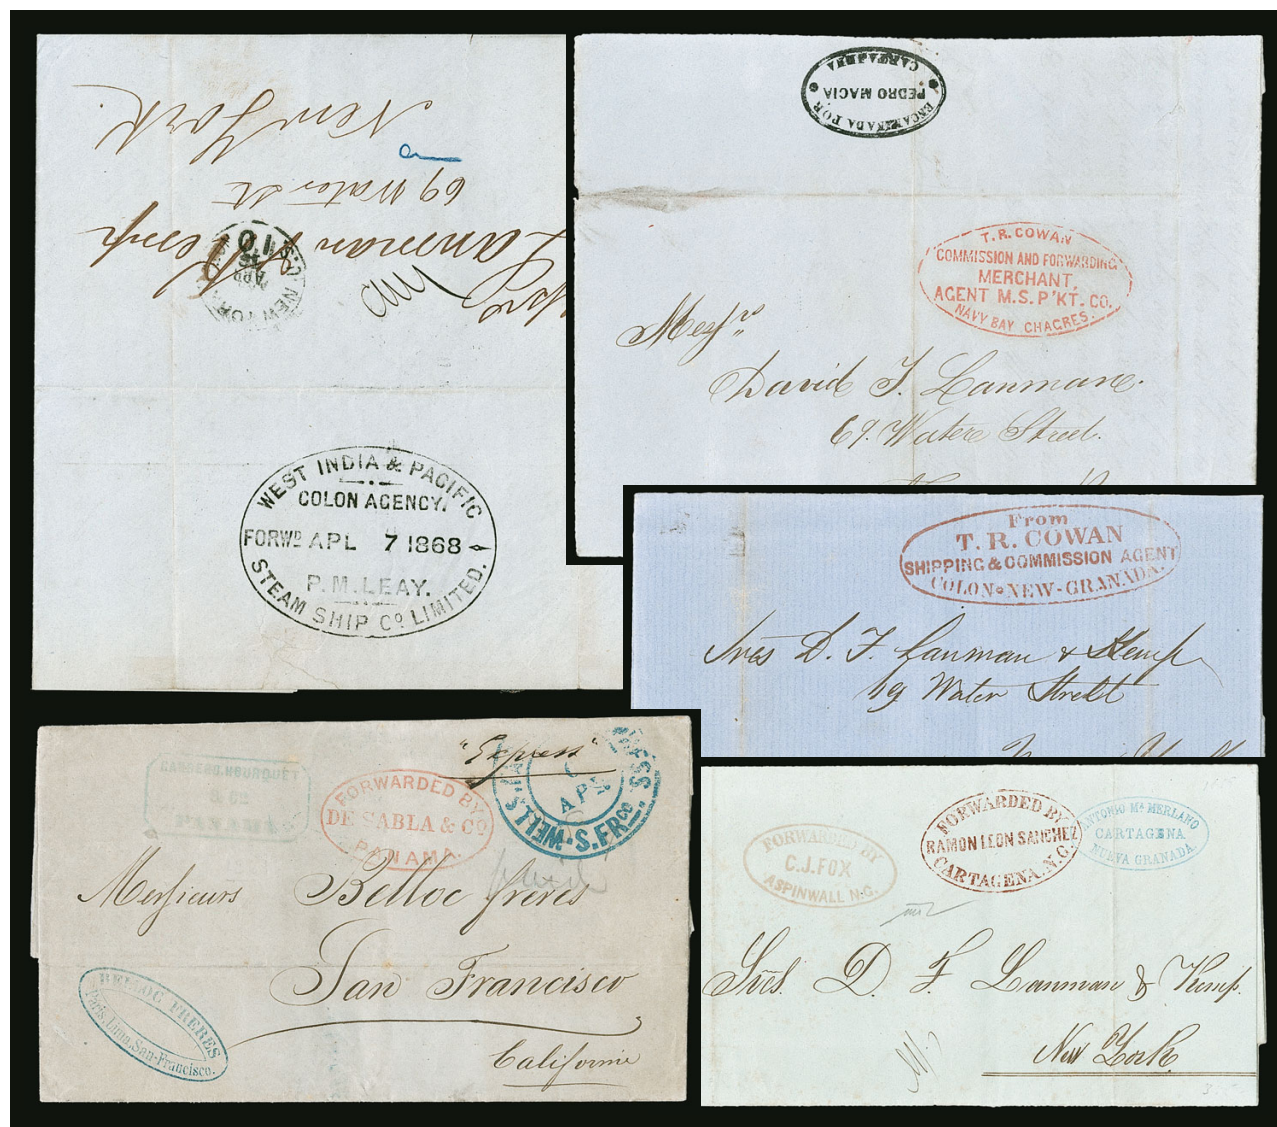 New York.
69 Water St
Lanman & Kemp
NEW YORK
APR
15
10
U.S.
WEST INDIA & PACIFIC
COLON AGENCY.
FORWD APL 7 1868
P. M. LEAY.
STEAM SHIP Co LIMITED.
ENCAMINADA POR
PEDRO MACIA
CARTAJENA
T. R. COWAN
COMMISSION AND FORWARDING
MERCHANT,
AGENT M.S. P'KT. CO.
NAVY BAY CHAGRES.
Messrs
David T. Lanman.
69. Water Street.
From
T. R. COWAN
SHIPPING & COMMISSION AGENT
COLON NEW-GRANADA.
Sres D. F. Lanman & Kemp
69 Water Street
"Express"
& Co
PANAMA
FORWARDED BY
DE SABLA & Co
PANAMA
WELLS,
APR
S. FRCO.
Messieurs Belloc frères
San Francisco
Californie
BELLOC FRERES
Paris, Lima, San-Francisco.
FORWARDED BY
C.J. FOX
ASPINWALL N.G.
FORWARDED BY
RAMON LEON SANCHEZ
CARTAGENA. N.G.
ANTONIO Ma MERLANO
CARTAGENA.
NUEVA GRANADA.
Sres. D. F. Lanman & Kemp.
New York.